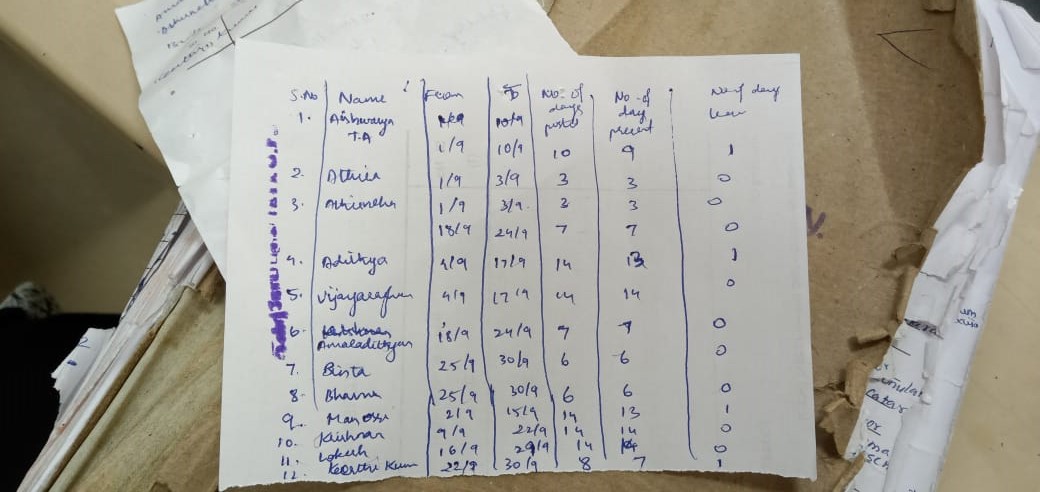 S.No Name From To No. of days posted No. of day present No of day leave
1. Aishwarya T.A 1/9 10/9
1/9 10/9 10 9 1
2. Athira 1/9 3/9 3 3 0
3. 1/9 3/9 3 3 0
18/9 24/9 7 7 0
4. Adithya 4/9 17/9 14 13 1
5. Vijayaraghavan 4/9 17/9 14 14 0
6. Amaladithyan 18/9 24/9 7 7 0
7. Binta 25/9 30/9 6 6 0
8. Bhavna 25/9 30/9 6 6 0
9. Manossi 2/9 15/9 14 13 1
10. Krishnan 9/9 22/9 14 14 0
11. Lokesh 16/9 29/9 14 14 0
12. Keerthi Kum 22/9 30/9 8 7 1